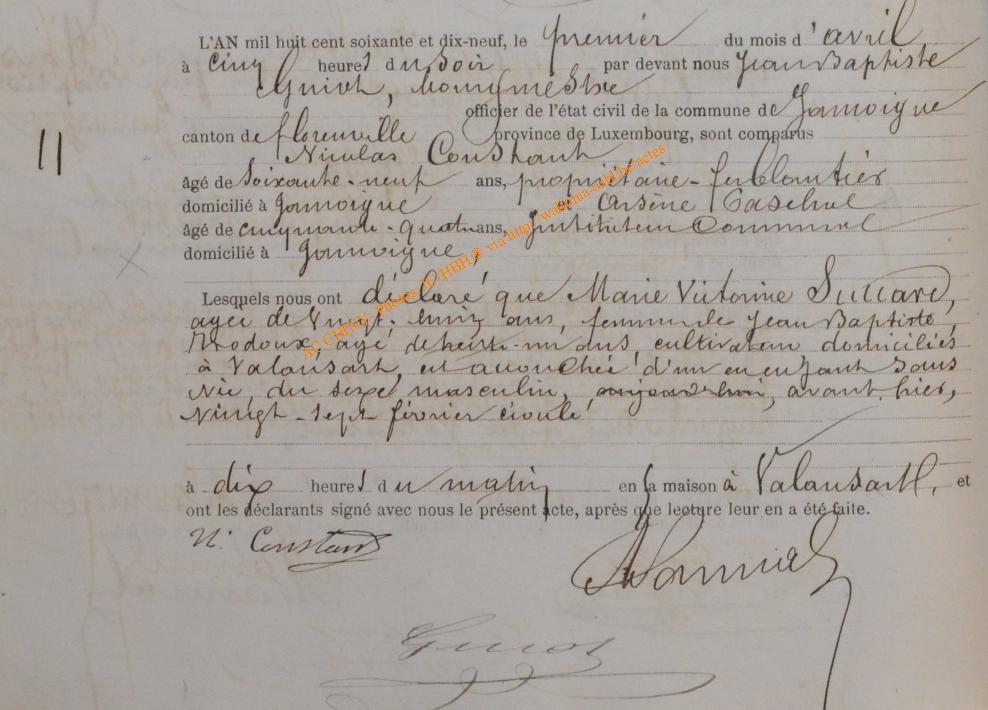 L'AN mil huit cent soixante et dix-neuf, le premier du mois d'avril
à cinq heures du soir par devant nous Jean Baptiste
Guiot, bourgmestre
officier de l'état civil de la commune de Jamoigne
canton de florenville province de Luxembourg, sont comparus
11
Nicolas Constant
âgé de soixante-neuf ans, propriétaire-ferblantier
domicilié à Jamoigne et Arsène
âgé de cinquante-quatre ans, Instituteur Communal
domicilié à Jamoigne,
Lesquels nous ont déclaré que Marie Victorine Succard,
agée de vingt-huit ans, femme de Jean Baptiste
agé de trente-un ans, cultivateur domiciliés
à Valansart, est accouchée d'un enfant sans
vie, du sexe masculin, aujourd'hui, avant hier,
vingt-sept février écoulé
à dix heures du matin en sa maison à Valansart, et
ont les déclarants signé avec nous le présent acte, après que lecture leur en a été faite.
N. Constant
Guiot
via http://wallonia-asbl.be-actes